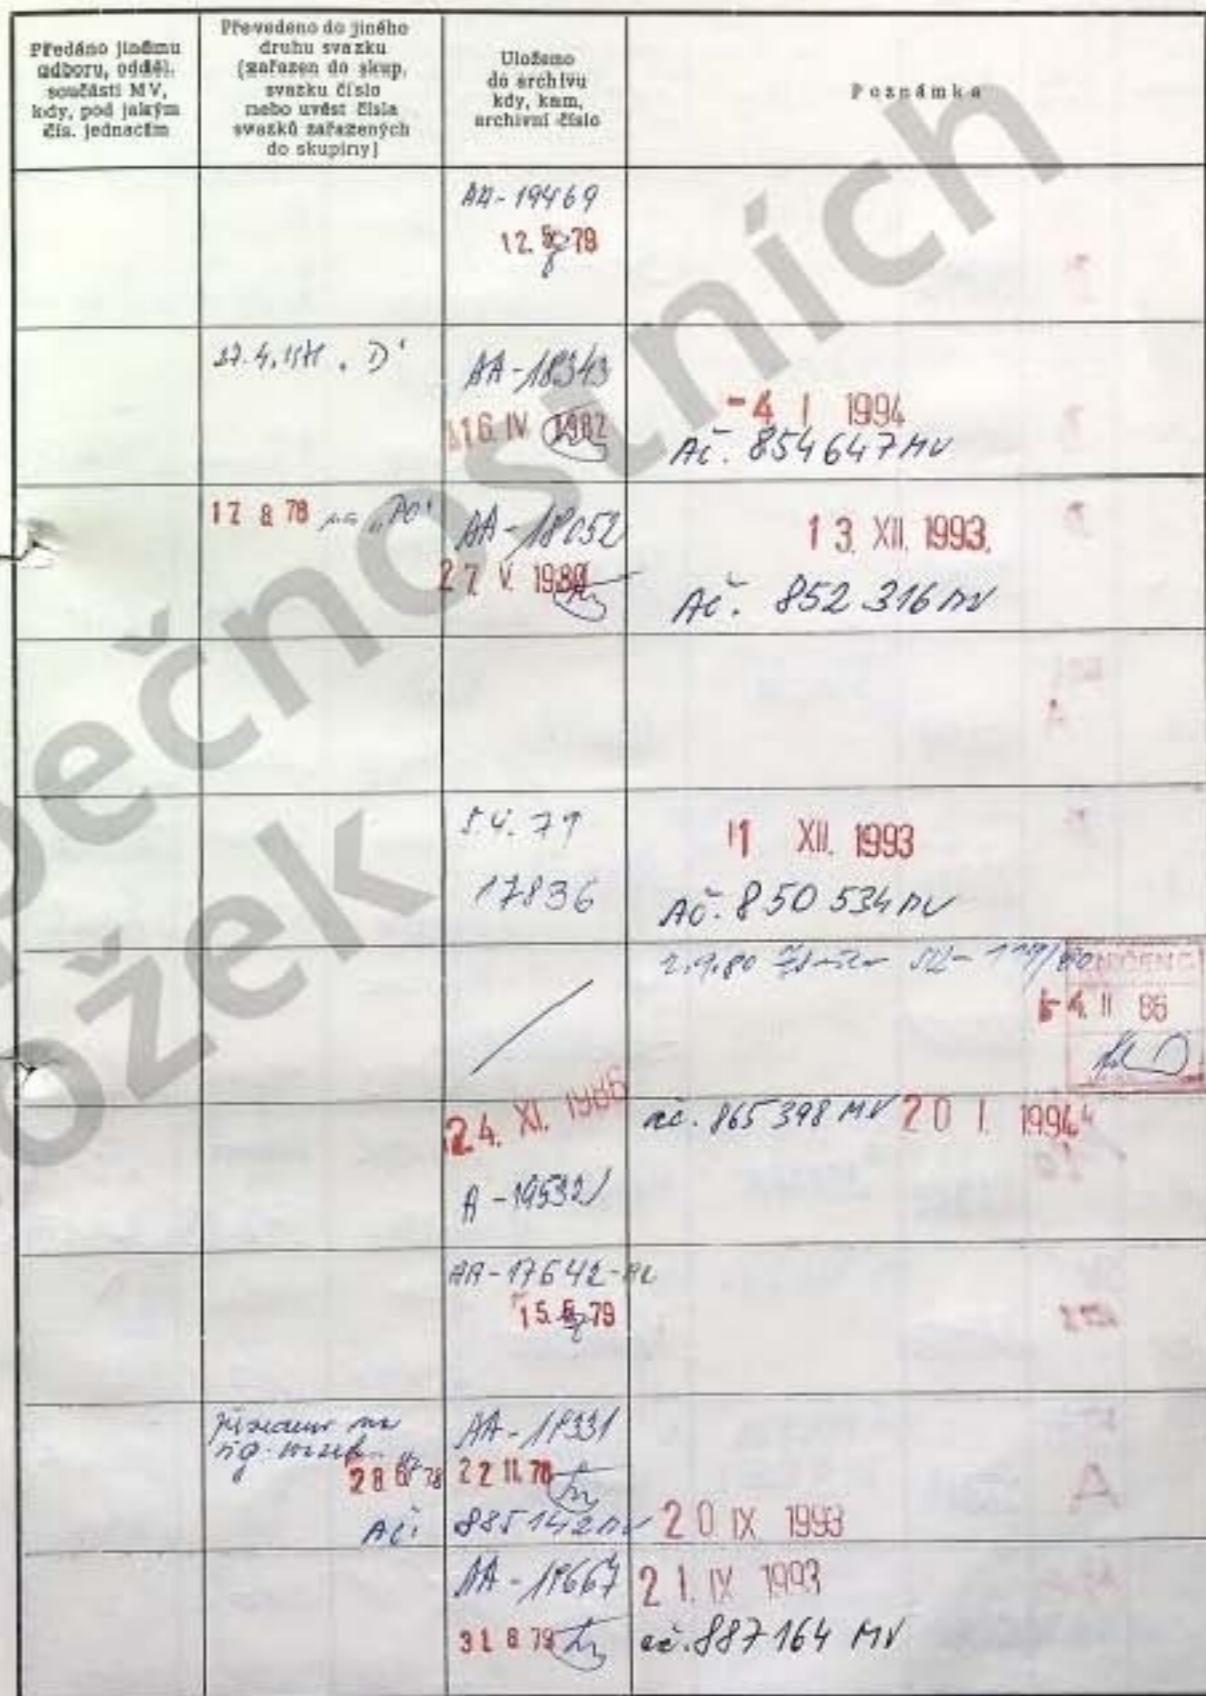 Předáno jinému
odboru, odděl.
součásti MV,
kdy, pod jakým
čís. jednacím
Převedeno do jiného
druhu svazku
(zařazen do skup.
svazku číslo
nebo uvést čísla
svazků zařazených
do skupiny)
Uloženo
do archivu
kdy, kam,
archivní číslo
Poznámka
AA-19469
12. 5. 79
27.4. "D"
AA-18343
16 IV 1982
-4 I 1994
Ač. 854647 MV
17 8 78 na "PO"
AA-18052
27 V. 1980
13. XII. 1993.
Ač. 852 316 MV
5.4. 79
17836
11 XII. 1993
Ač. 850 534 MV
2.9.80
4. II 86
24. XI. 1986
A-19532
ač. 865 398 MV 20 I. 1994
AA-17642
15. 5. 79
na
28 6 78
AA-18331
22 11. 78
Ač. 885142 MV 20 IX 1993
AA-18667
31. 8 79
21. IX 1993
ač. 887 164 MV
ečnostních
ožek